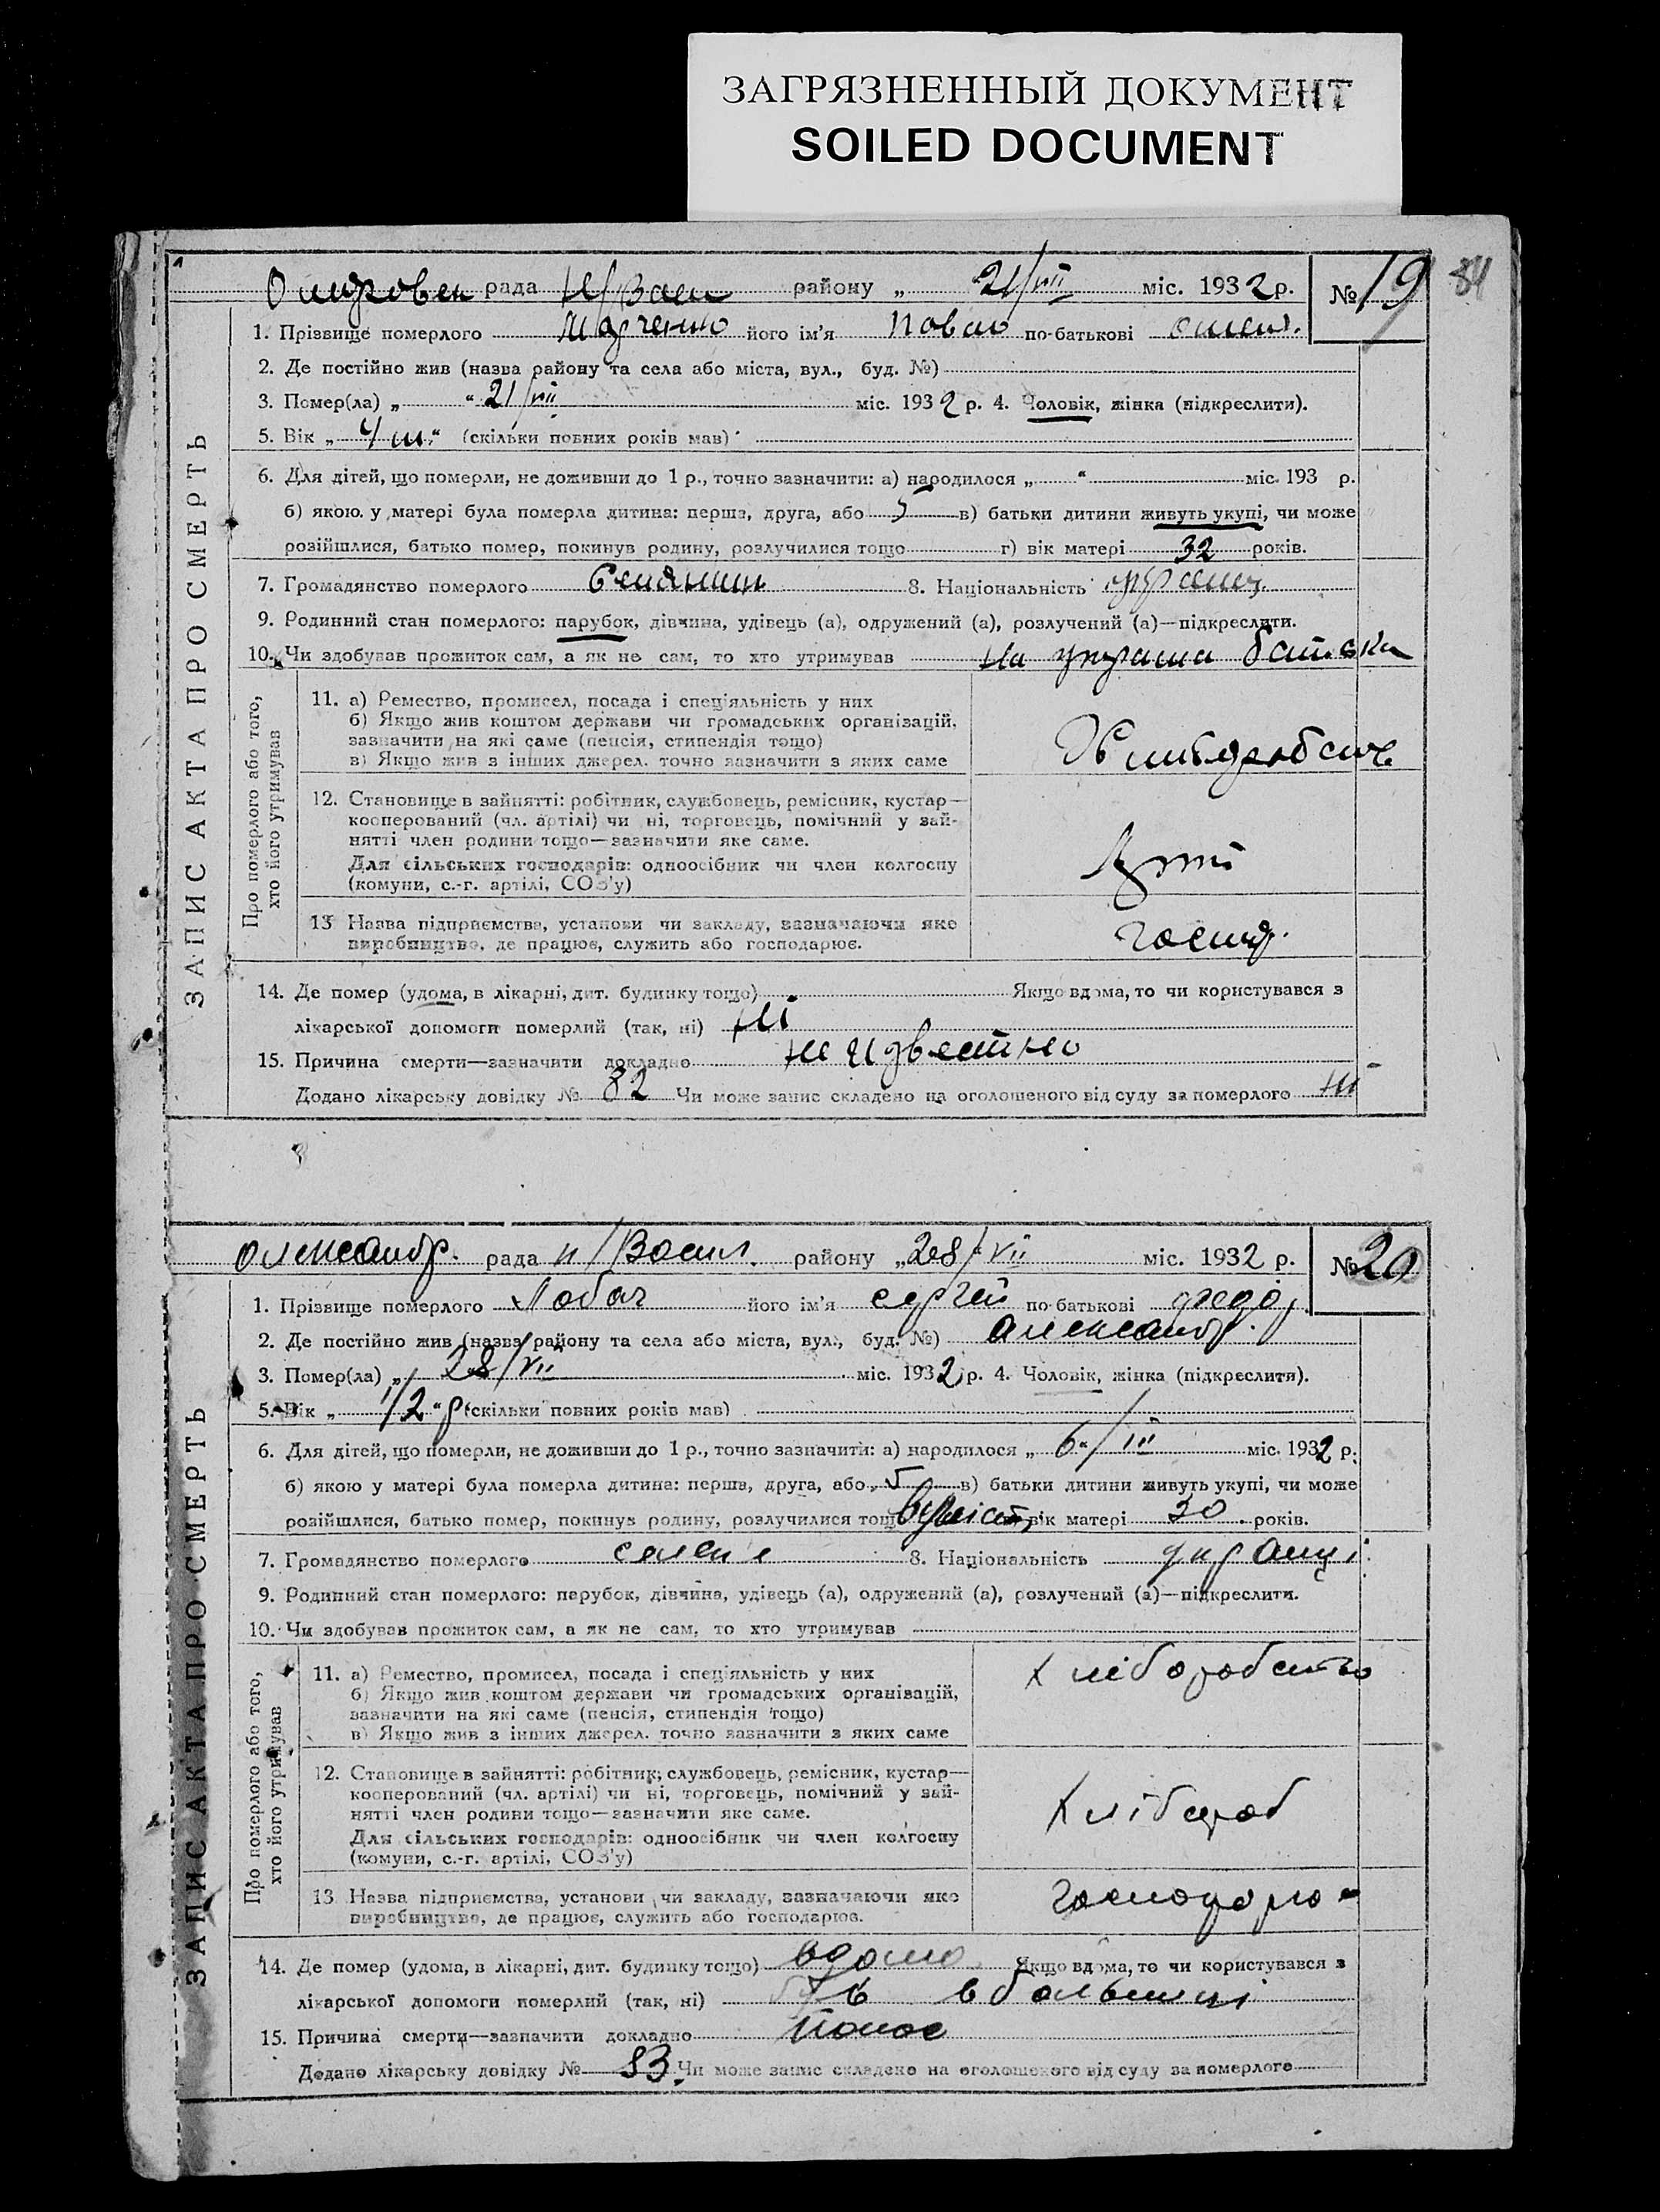 ЗАГРЯЗНЕННЫЙ ДОКУМЕНТ
SOILED DOCUMENT
84
рада Н/Васил району „ 21/VII міс. 1932 р. № 19
1. Прізвище померлого його ім'я Павло по-батькові
2. Де постійно жив (назва району та села або міста, вул., буд. №)
3. Помер(ла) „ “ 21/VII міс. 1932 р. 4. Чоловік, жінка (підкреслити).
5. Вік „ 4 м. “ (скільки повних років мав)
6. Для дітей, що померли, не доживши до 1 р., точно зазначити: а) народилося „ “ міс. 193 р.
б) якою у матері була померла дитина: перша, друга, або 5 в) батьки дитини живуть укупі, чи може
розійшлися, батько помер, покинув родину, розлучилися тощо г) вік матері 32 років.
7. Громадянство померлого Селянин 8. Національність
9. Родинний стан померлого: парубок, дівчина, удівець (а), одружений (а), розлучений (а)—підкреслити.
10. Чи здобував прожиток сам, а як не сам, то хто утримував на батька
ЗАПИС АКТА ПРО СМЕРТЬ
Про померлого або того,
хто його утримував
11. а) Ремество, промисел, посада і спеціяльність у них
б) Якщо жив коштом держави чи громадських організацій,
зазначити на які саме (пенсія, стипендія тощо)
в) Якщо жив з інших джерел, точно зазначити з яких саме
12. Становище в зайнятті: робітник, службовець, ремісник, кустар—
кооперований (чл. артілі) чи ні, торговець, помічний у зай-
нятті член родини тощо—зазначити яке саме.
Для сільських господарів: одноосібник чи член колгоспу
(комуни, с.-г. артілі, СОЗ'у)
13 Назва підприємства, установи чи закладу, зазначаючи яке
виробництво, де працює, служить або господарює.
14. Де помер (удома, в лікарні, дит. будинку тощо) Якщо вдома, то чи користувався з
лікарської допомоги померлий (так, ні) Ні
15. Причина смерти—зазначити докладно не известно
Додано лікарську довідку № 82 Чи може запис складено на оголошеного від суду за померлого ні
Олександр. рада Н/Васил. району „ 28/VII міс. 1932 р. № 20
1. Прізвище померлого Лобач його ім'я Сергей по-батькові Федор
2. Де постійно жив (назва району та села або міста, вул., буд. №) Александр.
3. Помер(ла) „ 28/VII міс. 1932 р. 4. Чоловік, жінка (підкреслити).
5. Вік „ 1/2 “ р (скільки повних років мав)
6. Для дітей, що померли, не доживши до 1 р., точно зазначити: а) народилося „ 6“/III міс. 1932 р.
б) якою у матері була померла дитина: перша, друга, або 5 в) батьки дитини живуть укупі, чи може
розійшлися, батько помер, покинув родину, розлучилися тощо вік матері 30 років.
7. Громадянство померлого 8. Національність україн
9. Родинний стан померлого: парубок, дівчина, удівець (а), одружений (а), розлучений (а)—підкреслити.
10. Чи здобував прожиток сам, а як не сам, то хто утримував
ЗАПИС АКТА ПРО СМЕРТЬ
Про померлого або того,
хто його утримував
11. а) Ремество, промисел, посада і спеціяльність у них хліборобство
б) Якщо жив коштом держави чи громадських організацій,
зазначити на які саме (пенсія, стипендія тощо)
в) Якщо жив з інших джерел, точно зазначити з яких саме
12. Становище в зайнятті: робітник, службовець, ремісник, кустар—
кооперований (чл. артілі) чи ні, торговець, помічний у зай-
нятті член родини тощо—зазначити яке саме. хлібороб
Для сільських господарів: одноосібник чи член колгоспу
(комуни, с.-г. артілі, СОЗ'у)
13 Назва підприємства, установи чи закладу, зазначаючи яке
виробництво, де працює, служить або господарює.
14. Де помер (удома, в лікарні, дит. будинку тощо) вдома Якщо вдома, то чи користувався з
лікарської допомоги померлий (так, ні) був в больниці
15. Причина смерти—зазначити докладно понос
Додано лікарську довідку № 83 Чи може запис складено на оголошеного від суду за померлого